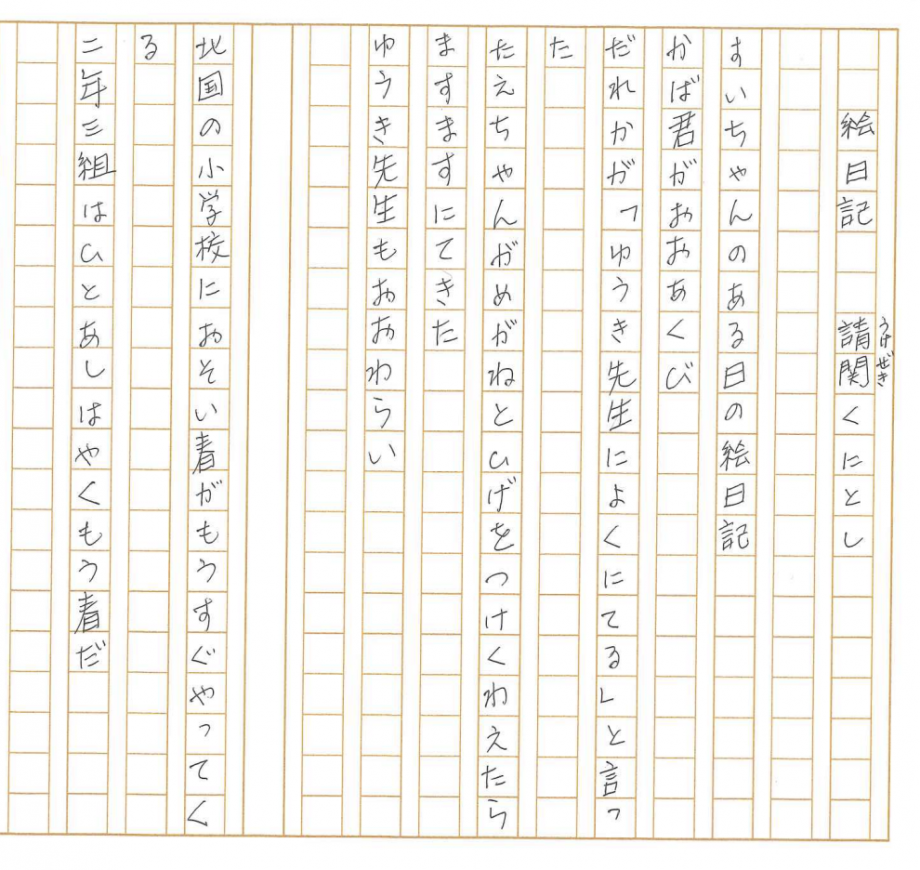 絵日記　請関くにとし
うけぜき
すいちゃんのある日の絵日記
かば君がおおあくび
だれかが「ゆうき先生によくにてる」と言っ
た
たえちゃんがめがねとひげをつけくわえたら
ますますにてきた
ゆうき先生もおおわらい
北国の小学校におそい春がもうすぐやってく
る
二年三組はひとあしはやくもう春だ